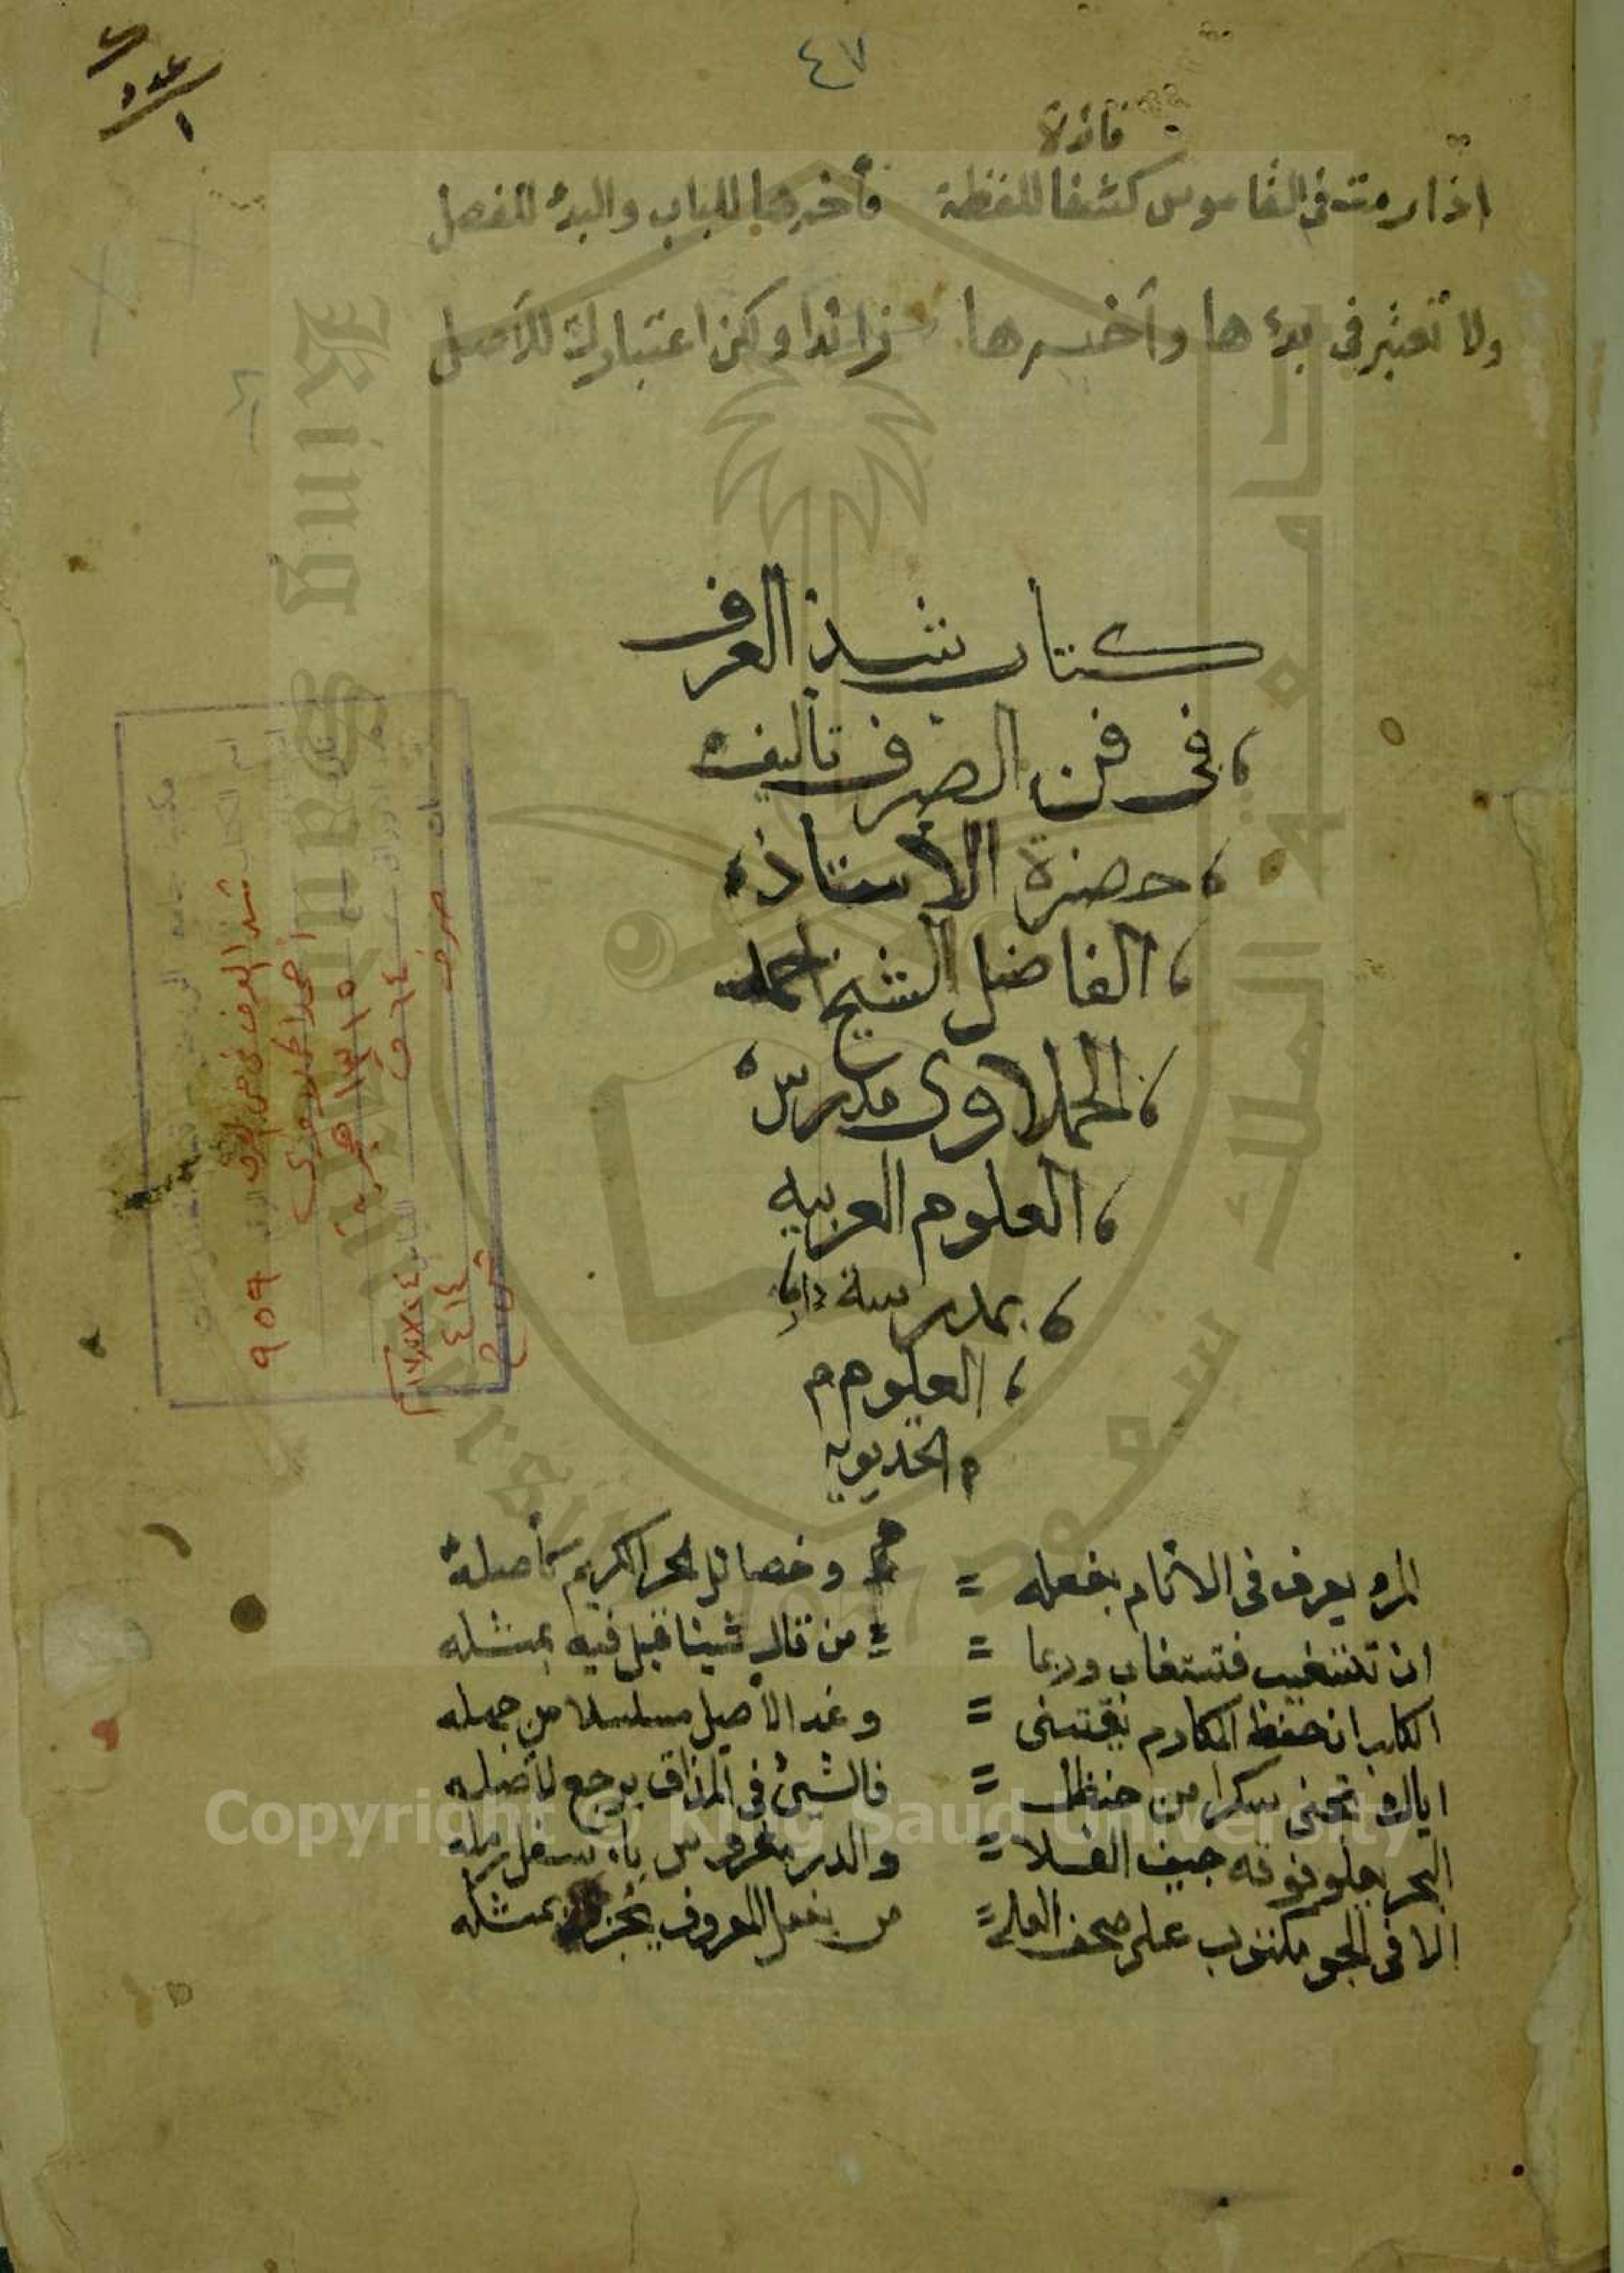 ٤٧
عدد
١
فائدة
اذا رمت فى القاموس كشفا للفظة فأخرها للباب والبدء للفصل
ولا تعتبر فى بدءها وأخيرها زائدا ولكن اعتبارك للأصل
كتاب شذ العرف
فى فن الصرف تأليف
حضرة الأستاذ
الفاضل الشيخ احمد
الحملاوى مدرس
العلوم العربيه
بمدرسة دار
العلوم م
الخديويه
المرء يعرف فى الانام بفعله = وخصائل الحر الكريم كأصله
ان تستغيب فتستغاب وربما = من قال شيئا قيل فيه بمثله
الكلب ان حفظ المكارم يقتنى = وغدا الأصيل مسلسلا من جهله
اياك تجنى سكرا من حنظل = فالشئ فى المذاق يرجع لأصله
البحر يعلو فوقه جيف الفلا = والدر مغروس بأسفل رمله
الا فى الجو مكتوب على صحف العلى = من يفعل المعروف يجز بمثله
شذا العرف فى فن الصرف ٩٥٩
أحمد الحملاوى
١٣١٥ هجرية
٦٤ ق
صرف
٤١٤
King Saud University
جامعة الملك سعود
1957
Copyright © King Saud University